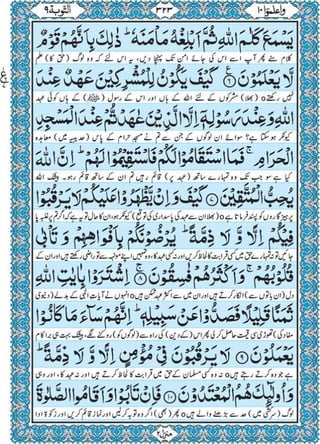 واعلموا ۱۰ ۳۲۳ التوبة ۹
يَسْمَعَ كَلٰمَ اللّٰهِ ثُمَّ اَبْلِغْهُ مَاْمَنَهٗ ؕ ذٰلِكَ بِاَنَّهُمْ قَوْمٌ
کلام سنے پھر آپ اسے اس کی جائے امن تک پہنچا دیں، یہ اس لئے کہ وہ لوگ (حق کا) علم
لَّا يَعْلَمُوْنَ ۶ كَيْفَ يَكُوْنُ لِلْمُشْرِكِيْنَ عَهْدٌ عِنْدَ
نہیں رکھتے o (بھلا) مشرکوں کے لئے اللہ کے ہاں اور اس کے رسول (ﷺ) کے ہاں کوئی عہد
اللّٰهِ وَعِنْدَ رَسُوْلِهٖۤ اِلَّا الَّذِيْنَ عٰهَدْتُّمْ عِنْدَ الْمَسْجِدِ
کیونکر ہو سکتا ہے؟ سوائے ان لوگوں کے جن سے تم نے مسجدِ حرام کے پاس (حدیبیہ میں) معاہدہ
الْحَرَامِ ۚ فَمَا اسْتَقَامُوْا لَكُمْ فَاسْتَقِيْمُوْا لَهُمْ ؕ اِنَّ اللّٰهَ
کیا ہے سو جب تک وہ تمہارے ساتھ (عہد پر) قائم رہیں تم ان کے ساتھ قائم رہو۔ بیشک اللہ
يُحِبُّ الْمُتَّقِيْنَ ۷ كَيْفَ وَاِنْ يَّظْهَرُوْا عَلَيْكُمْ لَا يَرْقُبُوْا
پرہیزگاروں کو پسند فرماتا ہے o (بھلا ان سے عہد کی پاسداری کی توقع) کیونکر ہو، ان کا حال تو یہ ہے کہ اگر تم پر غلبہ پا
فِيْكُمْ اِلًّا وَّلَا ذِمَّةً ؕ يُرْضُوْنَكُمْ بِاَفْوَاهِهِمْ وَتَاْبٰى
جائیں تو نہ تمہارے حق میں کسی قرابت کا لحاظ کریں اور نہ کسی عہد کا، وہ تمہیں اپنے مونہہ سے تو راضی رکھتے ہیں اور ان کے
قُلُوْبُهُمْ ۚ وَاَكْثَرُهُمْ فٰسِقُوْنَ ۸ اِشْتَرَوْا بِاٰيٰتِ اللّٰهِ
دل (ان باتوں سے) انکار کرتے ہیں اور ان میں سے اکثر عہد شکن ہیں o انہوں نے آیاتِ الٰہی کے بدلے (دنیوی
ثَمَنًا قَلِيْلًا فَصَدُّوْا عَنْ سَبِيْلِهٖ ؕ اِنَّهُمْ سَآءَ مَا كَانُوْا
مفاد کی) تھوڑی سی قیمت حاصل کر لی پھر اس (کے دین) کی راہ سے (لوگوں کو) روکنے لگے، بیشک بہت ہی برا کام
يَعْمَلُوْنَ ۹ لَا يَرْقُبُوْنَ فِيْ مُؤْمِنٍ اِلًّا وَّلَا ذِمَّةً ؕ
ہے جو وہ کرتے رہتے ہیں o نہ وہ کسی مسلمان کے حق میں قرابت کا لحاظ کرتے ہیں اور نہ عہد کا، اور وہی
وَاُولٰٓئِكَ هُمُ الْمُعْتَدُوْنَ ۱۰ فَاِنْ تَابُوْا وَاَقَامُوا الصَّلٰوةَ
لوگ (سرکشی میں) حد سے بڑھنے والے ہیں o پھر (بھی) اگر وہ توبہ کر لیں اور نماز قائم کریں اور زکوٰۃ ادا
منزل ۲